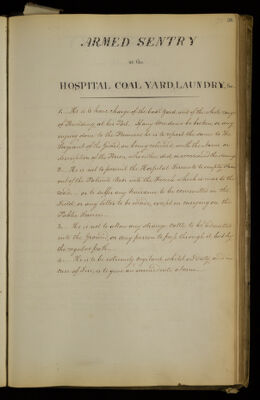 ARMED SENTRY
at the
HOSPITAL COAL YARD, LAUNDRY, &c.
1. He is to have charge of the Coal Yard, and of the whole range
of Buildings at his Post. If any Windows be broken, or any
injury done to the Premises he is to report the same to the
Serjeant of the Guard on being relieved, with the Name or
description of the Person who either did, or occasioned the damage.
2. He is not to permit the Hospital Servants to empty
out of the Patients Beds into the Field which is near to the
or to suffer any Nuisance to be committed in the
Field, or any litter to be made, except in carrying on the
Public Service.
3. He is not to allow any strange Cattle to be admitted
into the Ground, or any person to pass through it but by
the regular path.
4. He is to be extremely vigilant whilst on duty, and in
case of Fire, is to give an immediate alarm.